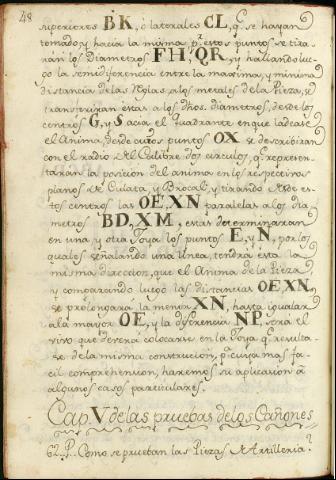 48
superiores BK, ô laterales CL, q.e se hayan
tomado, y hacia la misma p.te estos puntos se tira-
ran los Diametros FH, QR, y hallando lue-
go la semidiferencia entre la maxima, y minima
distancia de las Reglas a los metales de la Pieza, se
transferiran estas a los dhos. diametros, desde los
centros G, y S acia el quadrante en que ladease
el Anima, desde cuios puntos OX se describiran
con el radio del Calibre dos circulos, q.e represen-
taran la posicion del anima en los respectivos
planos de Culata, y Brocal, y tirando desde es-
tos centros las OE, XN paralelas a los dia-
metros BD, XM, estas determinaran
en una, y otra Joya los puntos E, y N, por los
quales señalando una linea, tendra esta la
misma direccion, que el Anima de la Pieza,
y comparando luego las distancias OE, XN,
se prolongara la menor XN, hasta igualar
a la mayor OE, y la diferencia NP, será el
vivo que deverá colocarse en la Joya q.e resulta-
se de la misma construcion, p.a cuia mas fa-
cil comprehension, haremos su aplicacion â
algunos casos particulares.
Cap. V de las pruebas de los Cañones
62. P. Como se pruevan las Piezas de Artilleria?